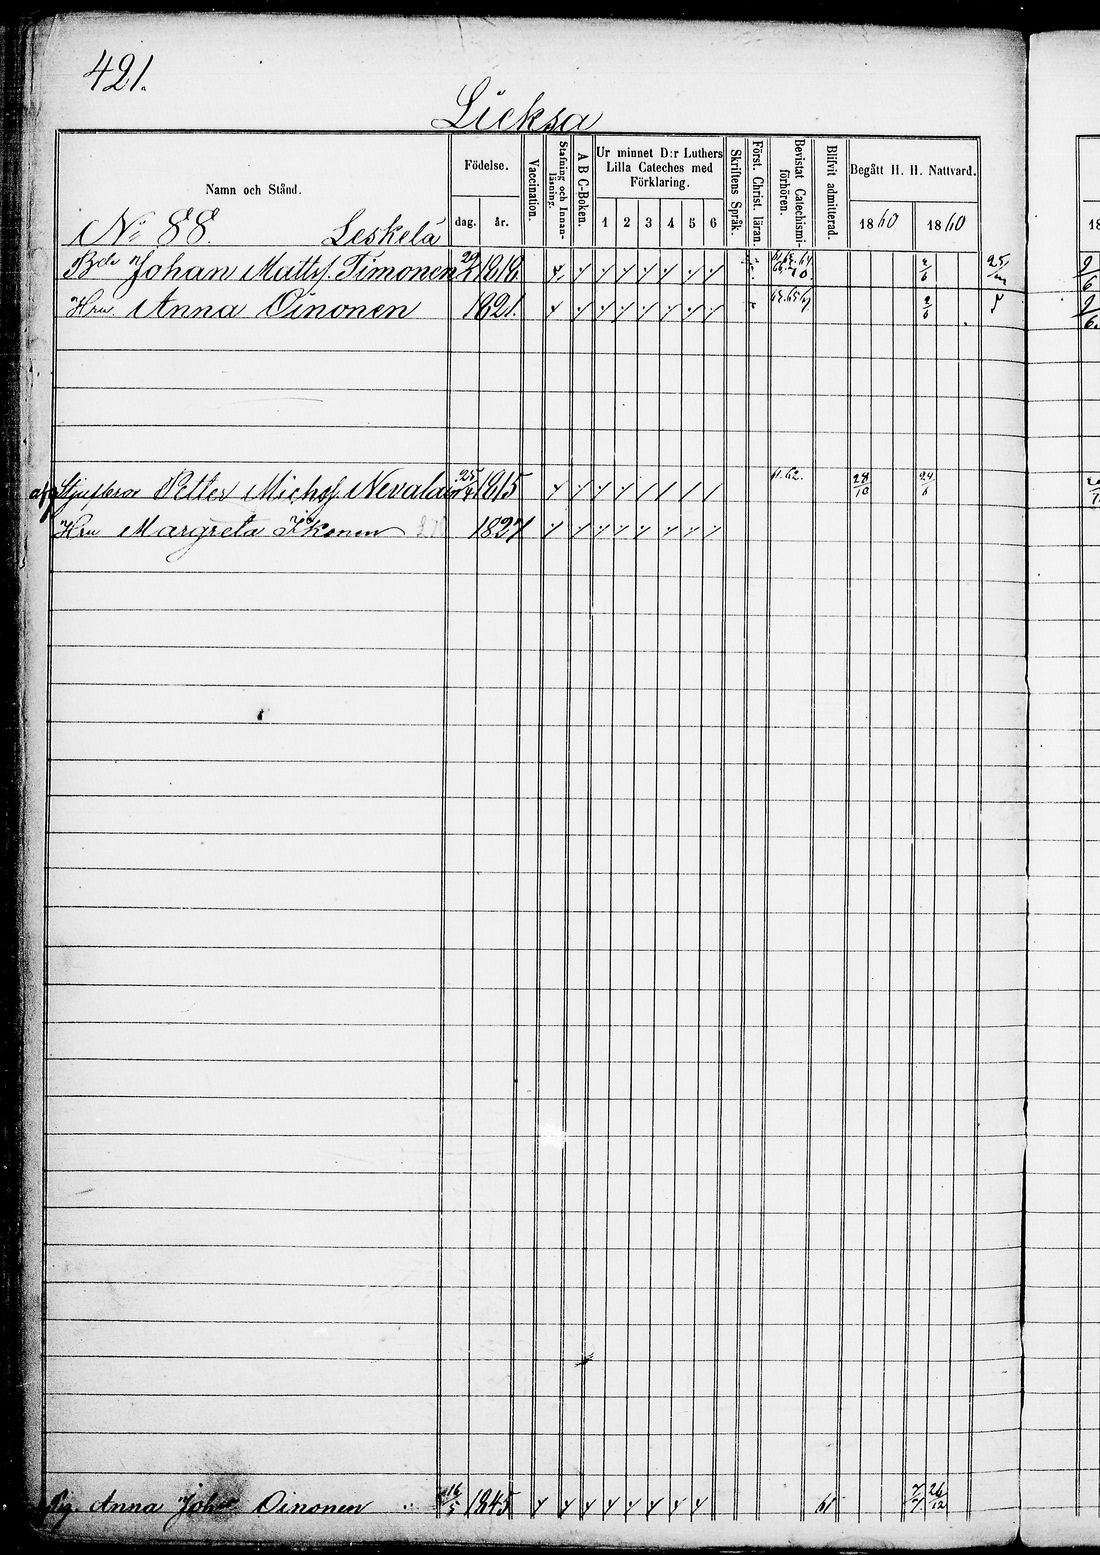 421.
Lieksa
Namn och Stånd.
Födelse.
dag.
år.
Vaccination.
Stafning och Innanläsning.
A B C-Boken.
Ur minnet D:r Luthers
Lilla Cateches med
Förklaring.
1 2 3 4 5 6
Skriftens Språk.
Först. Christ. läran.
Bevistat Catechismiförhören.
Blifvit admitterad.
Begått H. H. Nattvard.
1860 1860
No 88. Leskelä
Johan Matts. Timonen 1818 2/6 25
Hru Anna Oinonen 1821. 63.65.67 2/6
Petter Michs. Nevalain 25 1815 61.62. 28/10 24/6
Hru Margreta Ikonen 1827
Pig. Anna Joh Oinonen 16/5 1845 61 26/12